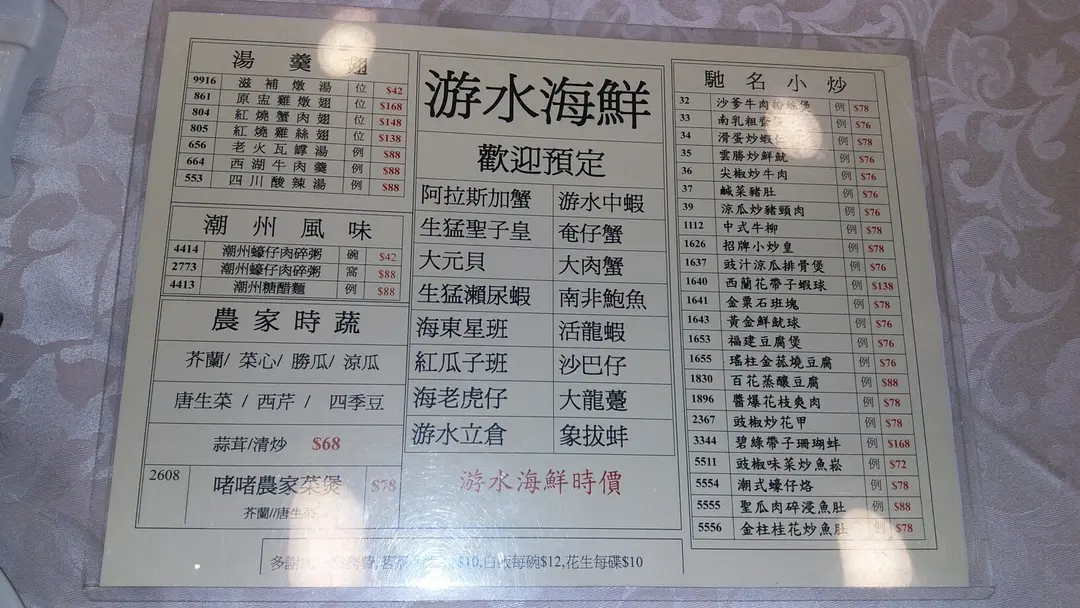 湯 羹 翅
9916 滋補燉湯 位 $42
861 原盅雞燉翅 位 $168
804 紅燒蟹肉翅 位 $148
805 紅燒雞絲翅 位 $138
656 老火瓦罉湯 例 $88
664 西湖牛肉羹 例 $88
553 四川酸辣湯 例 $88
潮州風味
4414 潮州蠔仔肉碎粥 碗 $42
2773 潮州蠔仔肉碎粥 窩 $88
4413 潮州糖醋麵 例 $88
農家時蔬
芥蘭/ 菜心/ 勝瓜/ 涼瓜
唐生菜 / 西芹 / 四季豆
蒜茸/清炒 $68
2608 啫啫農家菜煲 $78
芥蘭//唐生菜
游水海鮮
歡迎預定
阿拉斯加蟹 游水中蝦
生猛聖子皇 奄仔蟹
大元貝 大肉蟹
生猛瀨尿蝦 南非鮑魚
海東星班 活龍蝦
紅瓜子班 沙巴仔
海老虎仔 大龍躉
游水立倉 象拔蚌
游水海鮮時價
馳名小炒
32 沙爹牛肉粉絲煲 例 $78
33 南乳粗齋 例 $76
34 滑蛋炒蝦仁 例 $78
35 雲勝炒鮮魷 例 $76
36 尖椒炒牛肉 例 $76
37 鹹菜豬肚 例 $76
39 涼瓜炒豬頸肉 例 $76
1112 中式牛柳 例 $78
1626 招牌小炒皇 例 $78
1637 豉汁涼瓜排骨煲 例 $76
1640 西蘭花帶子蝦球 例 $138
1641 金粟石班塊 例 $78
1643 黃金鮮魷球 例 $76
1653 福建豆腐煲 例 $76
1655 瑤柱金菰燒豆腐 例 $76
1830 百花蒸釀豆腐 例 $88
1896 醬爆花枝爽肉 例 $78
2367 豉椒炒花甲 例 $78
3344 碧綠帶子珊瑚蚌 例 $168
5511 豉椒味菜炒魚崧 例 $72
5554 潮式蠔仔烙 例 $78
5555 聖瓜肉碎浸魚肚 例 $88
5556 金柱桂花炒魚肚 例 $78
多謝 $10,白飯每碗$12,花生每碟$10